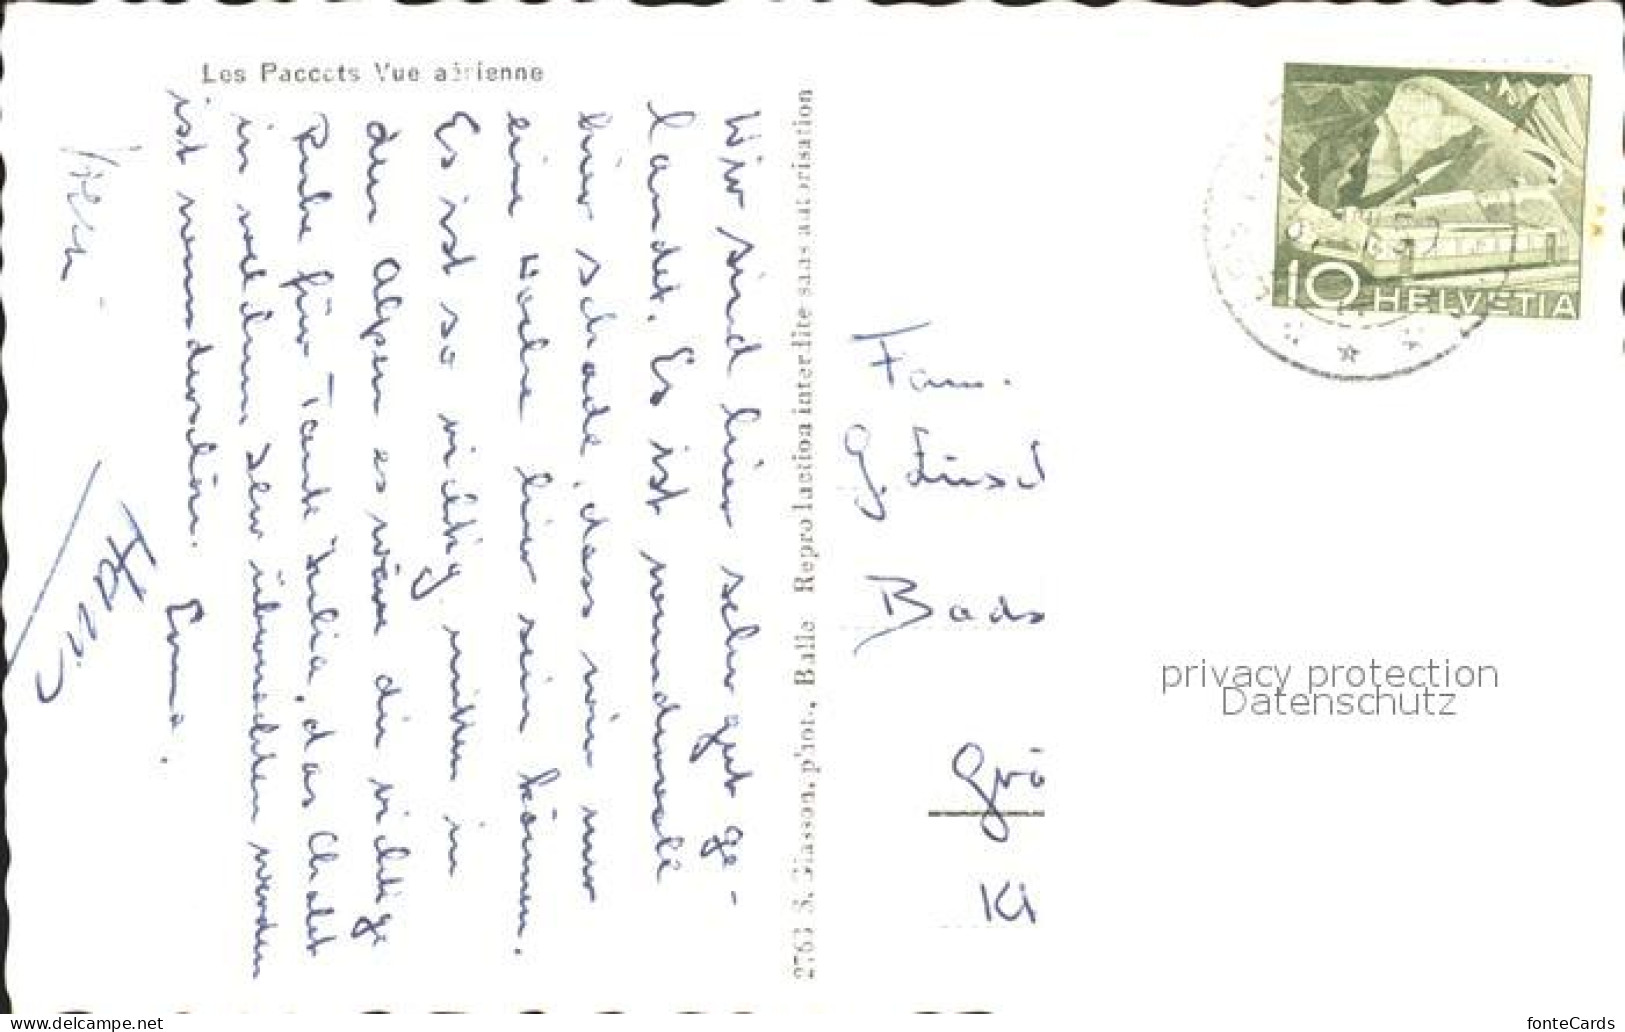 Les Paccots Vue aérienne
Wir sind hier sehr gut ge-
landet. Es ist wunderschön
hier schade, dass wir nur
eine Woche hier sein können.
Es ist so richtig mitten in
den Alpen es wäre die richtige
Ruhe für Tante Julia, das Chalet
in welchem wir übernachten werden
ist wunderschön. Emma.
Hanni
2763 S. Glasson, phot., Bulle Reproduction interdite sans autorisation
Fam.
G.
Bads
Grö
Kl
10 HELVETIA
privacy protection
Datenschutz
www.delcampe.net
fonteCards